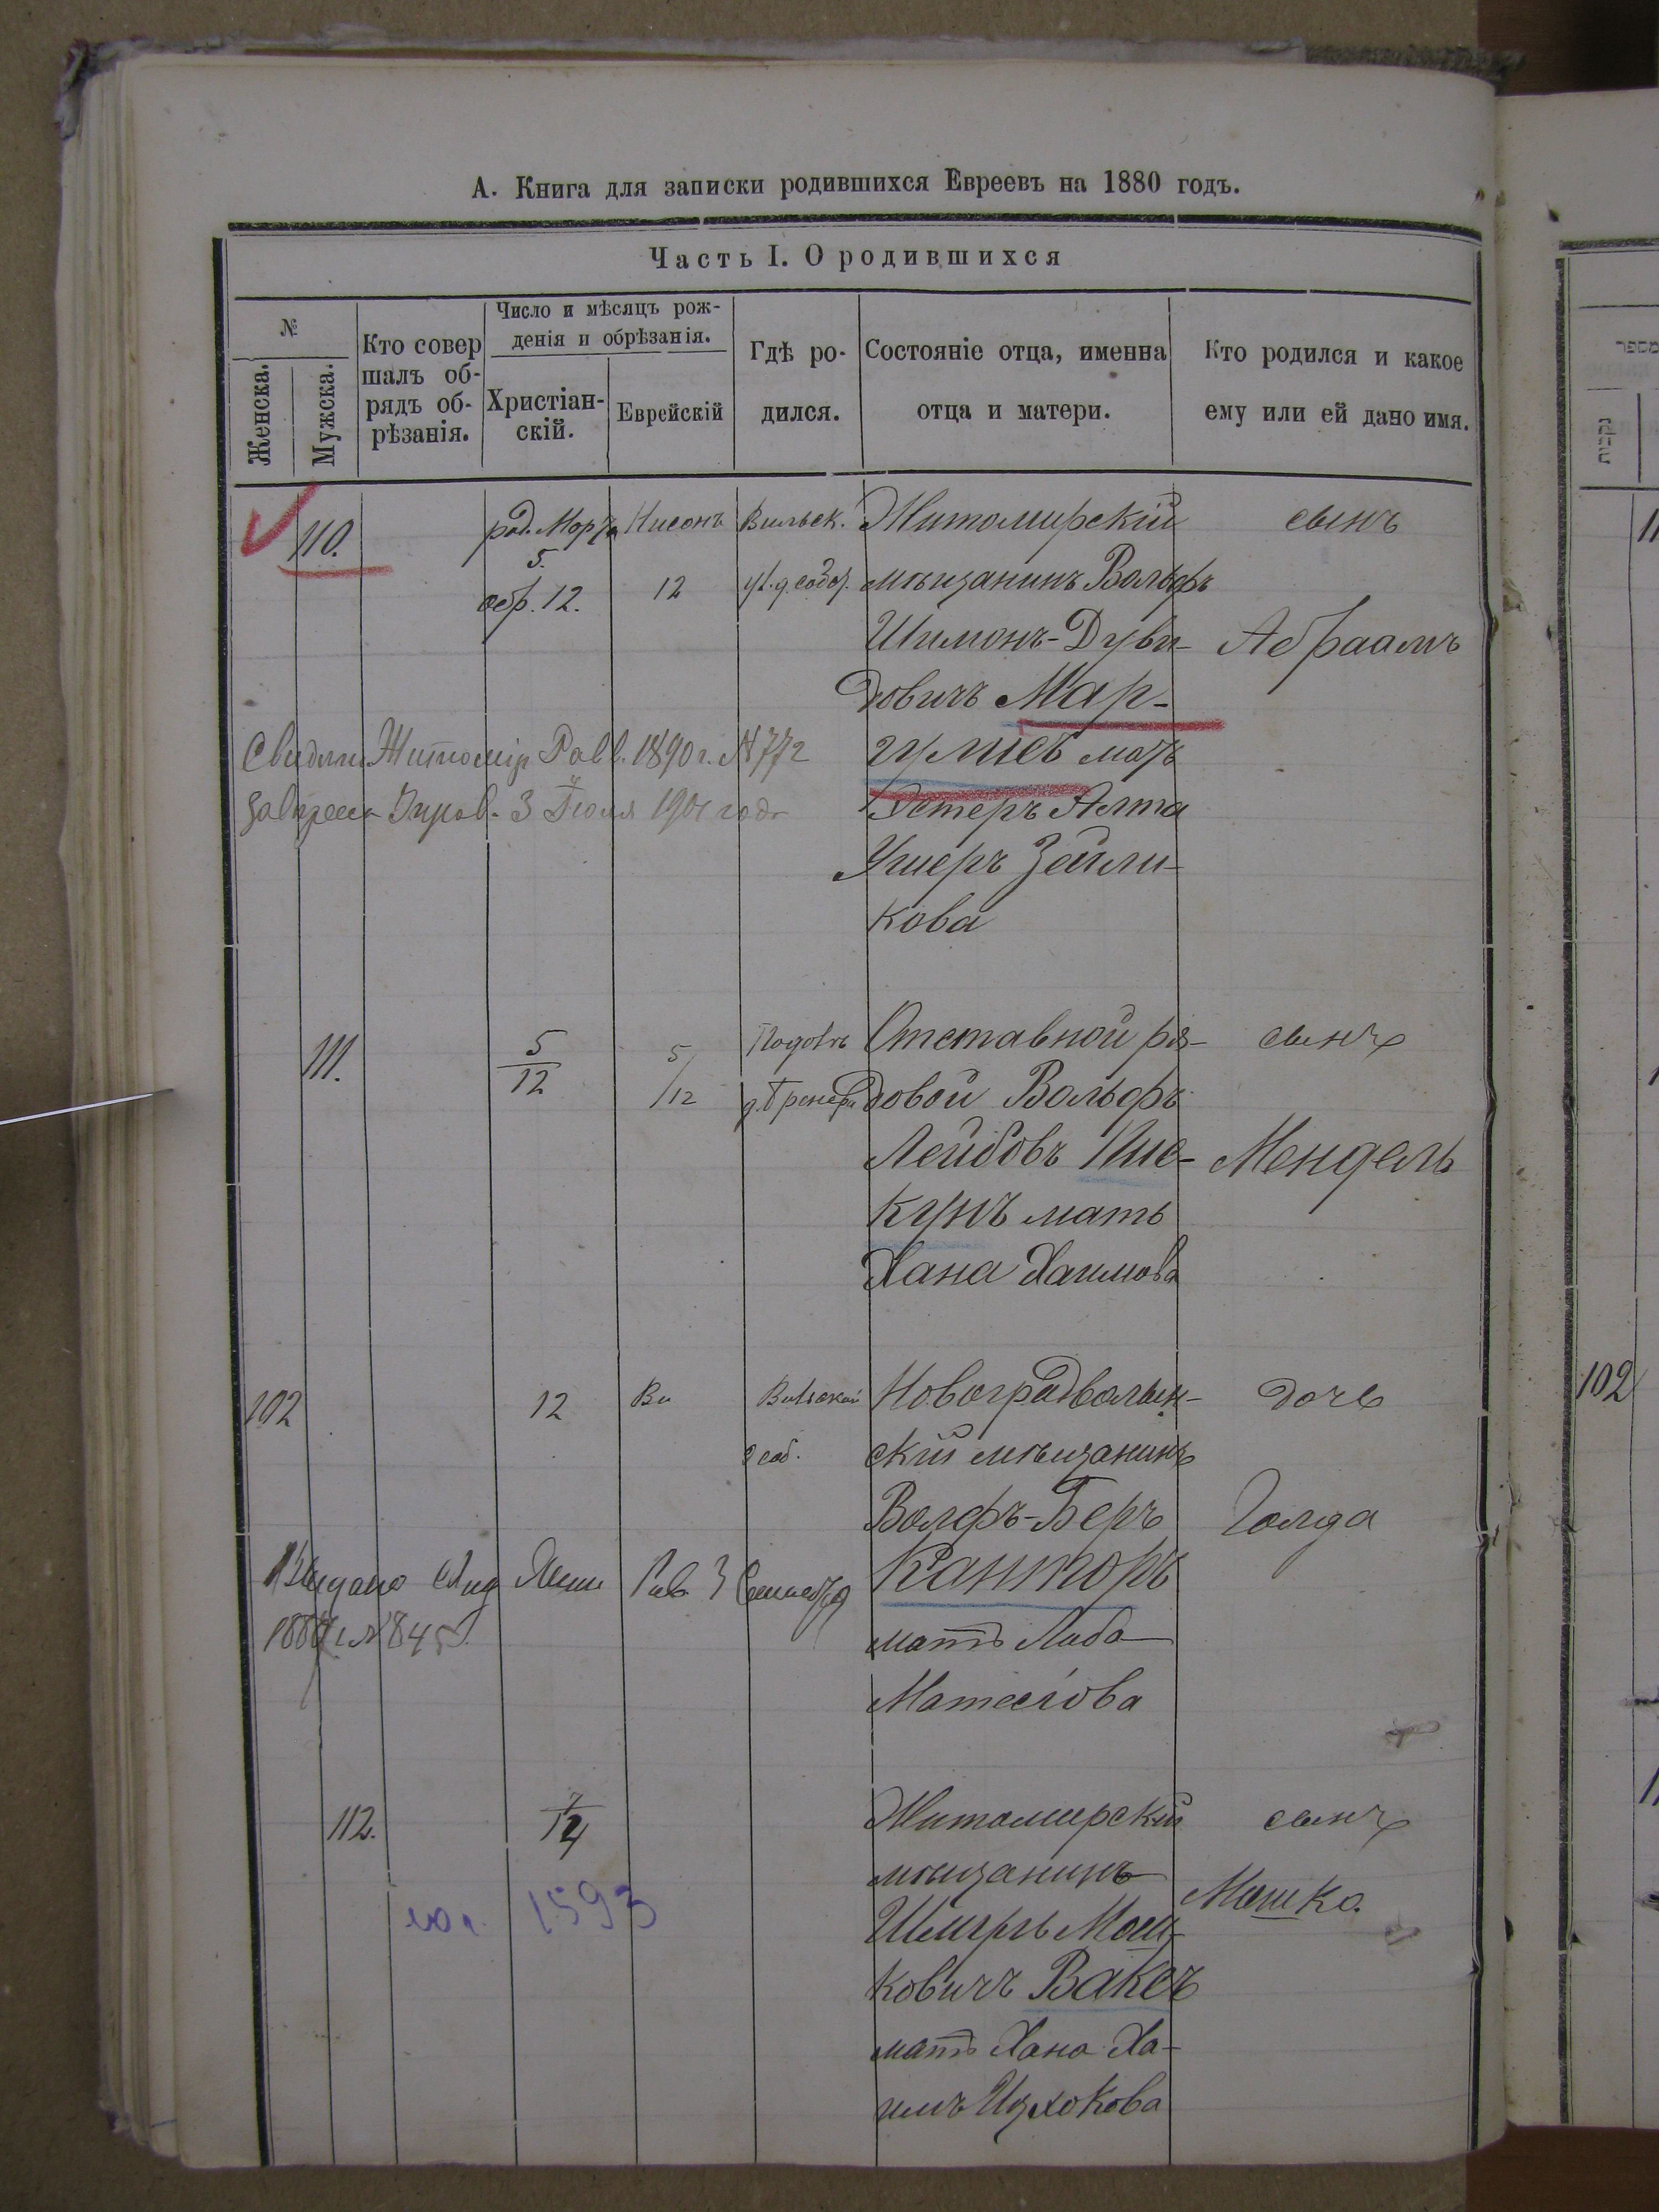 А. Книга для записки родившихся Евреевъ на 1880 годъ.
Часть I. О родившихся
№
Женска.
Мужска.
Кто совер
шалъ об-
рядъ об-
рѣзанія.
Число и мѣсяцъ рож-
денія и обрѣзанія.
Христіан-
скій.
Еврейскій
Гдѣ ро-
дился.
Состояніе отца, именна
отца и матери.
Кто родился и какое
ему или ей дано имя.
110.
род. Марта
5.
обр. 12.
Нисонъ
12
Вильск.
ул. д. собст.
Житомирскій
мѣщанинъ Вольфъ
Шимонъ-Дуви-
довичъ Мар-
гулисъ мать
Эстеръ Алта
Ушеръ Зейли-
кова
сынъ
Абраамъ
Житомир Равв. 1890 г. № 772
3 Іюля 1901 года
111.
5
12
5
/12
Отставной ря-
довой Вольфъ
Лейбовъ Пис-
кунъ мать
Хана Хаимова
сынъ
Мендель
102
12
Вильской
д соб.
Новоградволын-
скій мѣщанинъ
Волфъ-Беръ
Канторъ
мать Либа
дочь
Голда
Выдано
№ 845
112.
Житомирскій
мѣщанинъ
Шмуль Мош-
ковичъ Ваксъ
мать Хана Ха-
имъ Ицхокова
сынъ
Мошко.
1593
102
מספר
נקבות